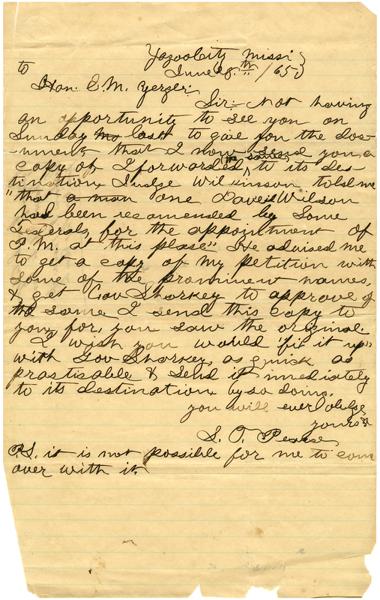 Yazoo City Missi
June 28th /65
to
Hon. E. M. Yerger
Sir. Not having
an opportunity to see you on
Sunday last to give you the doc-
-ument that I now send you a
copy of I forwarded the same to its des-
tination. Judge Wilkinson told me
"that a man one David Wilson
had been recomended by Some
for the appointment of
P.M. at this place" He advised me
to get a copy of my petition with
some of the prominent names,
& get Gov Sharkey to approve of
the same I send this copy to
you for, you saw the original
I wish you would "fix it up"
with Gov Sharkey, as quick as
practicable & send it imediately
to its destination by so doing.
you will ever oblige
yours &
S. T. Pearse
P.S. it is not possible for me to com
over with it.